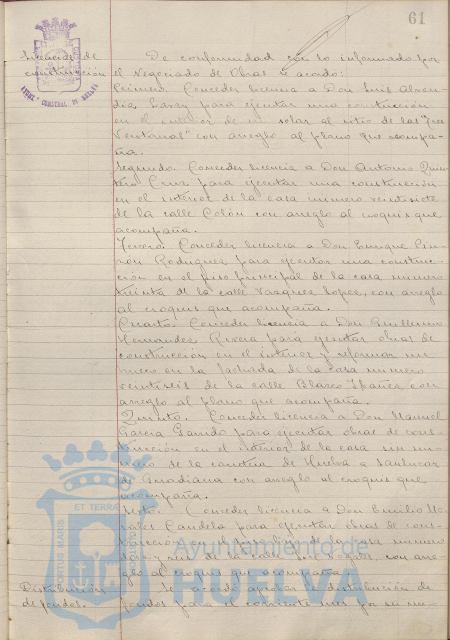 61
Licencias de
construcción
De conformidad con lo informado por
el Negociado de Obras se acordó:
Primero. Conceder licencia a Don Luis
para ejecutar una construcción
en el interior de un solar al sitio de las "Tres
Ventanas" con arreglo al plano que acompa-
ña.
Segundo. Conceder licencia a Don Antonio Quin-
tero Cruz para ejecutar una construcción
en el interior de la casa numero veintisiete
de la calle Colón con arreglo al croquis que
acompaña.
Tercero. Conceder licencia a Don Enrique Pin-
zon Rodriguez para ejecutar una construc-
ción en el piso principal de la casa numero
treinta de la calle Vazquez Lopez, con arreglo
al croquis que acompaña.
Cuarto. Conceder licencia a Don Guillermo
Hernandez Rivera para ejecutar obras de
construcción en el interior y reformar un
hueco en la fachada de la casa numero
veintiseis de la calle Blasco Ibañez con
arreglo al plano que acompaña.
Quinto. Conceder licencia a Don Manuel
Garcia Garrido para ejecutar obras de cons-
trucción en el interior de la casa sin nu-
mero de la carretera de Huelva a Sanlucar
de Guadiana con arreglo al croquis que
acompaña.
Sexto. Conceder licencia a Don Emilio Mo-
rales Candela para ejecutar obras de cons-
trucción en el de la casa numero
con arre-
glo al croquis que acompaña.
Distribución
de fondos.
Se acordó aprobar la distribución de
fondos para el corriente mes por su im-
ET TERRÆ
PORTUS MARIS
CUSTODIA
Ayuntamiento de
HUELVA